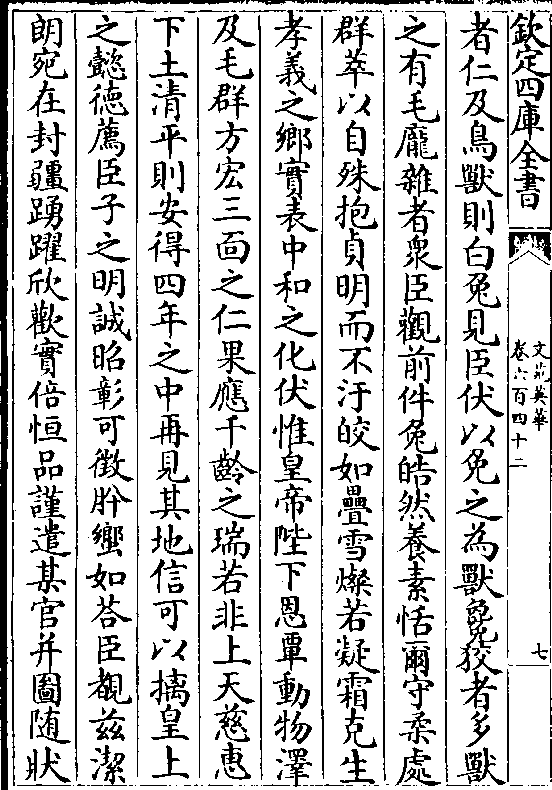 欽定四庫全書
文苑英華
卷六百四十二
七
者仁及鳥獸則白兔見臣伏以兔之為獸毚狡者多獸
之有毛龎雜者衆臣觀前件兔皓然養素恬爾守柔處
群萃以自殊抱貞明而不汙皎如疊雪燦若凝霜克生
孝義之鄉實表中和之化伏惟皇帝陛下恩覃動物澤
及毛群方宏三面之仁果應千齡之瑞若非上天慈惠
下土清平則安得四年之中再見其地信可以摛皇上
之懿徳薦臣子之明誠昭彰可徴肸蠁如答臣覩兹潔
朗宛在封疆踴躍欣歡實倍恒品謹遣某官并圖随狀